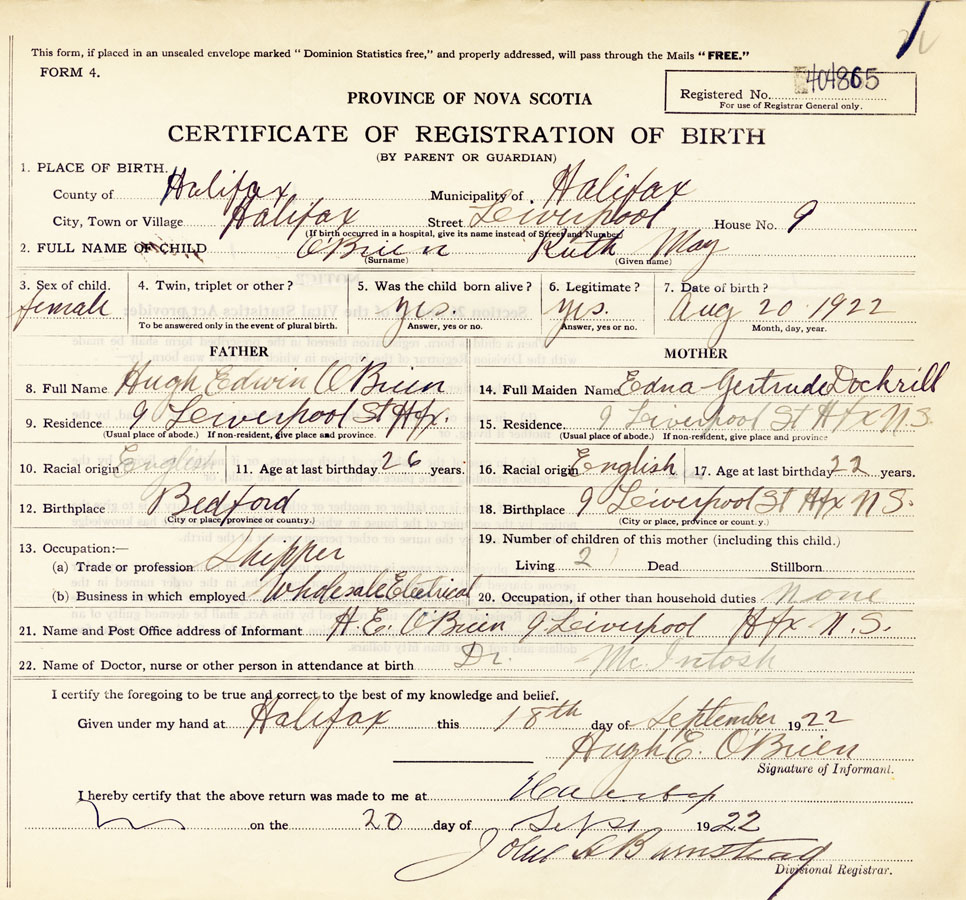 This form, if placed in an unsealed envelope marked "Dominion Statistics free," and properly addressed, will pass through the Mails "FREE."
FORM 4.
Registered No. 404865
For use of Registrar General only.
PROVINCE OF NOVA SCOTIA
CERTIFICATE OF REGISTRATION OF BIRTH
(BY PARENT OR GUARDIAN)
1. PLACE OF BIRTH.
County of Halifax Municipality of Halifax
City, Town or Village Halifax Street Leiverpool House No. 9
(If birth occurred in a hospital, give its name instead of Street and Number)
2. FULL NAME OF CHILD O'Brien Ruth May
(Surname) (Given name)
3. Sex of child. 4. Twin, triplet or other? 5. Was the child born alive? 6. Legitimate? 7. Date of birth?
female yes. yes. Aug 20 1922
To be answered only in the event of plural birth. Answer, yes or no. Answer, yes or no. Month, day, year.
FATHER MOTHER
8. Full Name Hugh Edwin O'Brien 14. Full Maiden Name Edna Gertrude Dockrill
9. Residence 9 Leiverpool St Hfx. 15. Residence. 9 Leiverpool St Hfx N.S.
(Usual place of abode.) If non-resident, give place and province. (Usual place of abode.) If non-resident, give place and province
10. Racial origin English 11. Age at last birthday 26 years. 16. Racial origin English 17. Age at last birthday 22 years.
12. Birthplace Bedford 18. Birthplace 9 Leiverpool St Hfx N.S.
(City or place, province or country.) (City or place, province or country.)
13. Occupation:— 19. Number of children of this mother (including this child.)
(a) Trade or profession Shipper Living 2 Dead Stillborn
(b) Business in which employed Wholesale Electrical 20. Occupation, if other than household duties None
21. Name and Post Office address of Informant H. E. O'Brien 9 Leiverpool Hfx N.S.
22. Name of Doctor, nurse or other person in attendance at birth Dr. McIntosh
I certify the foregoing to be true and correct to the best of my knowledge and belief.
Given under my hand at Halifax this 18th day of September 1922
Hugh E. O'Brien
Signature of Informant.
I hereby certify that the above return was made to me at
on the 20 day of Sept 1922
John A Barnstead
Divisional Registrar.